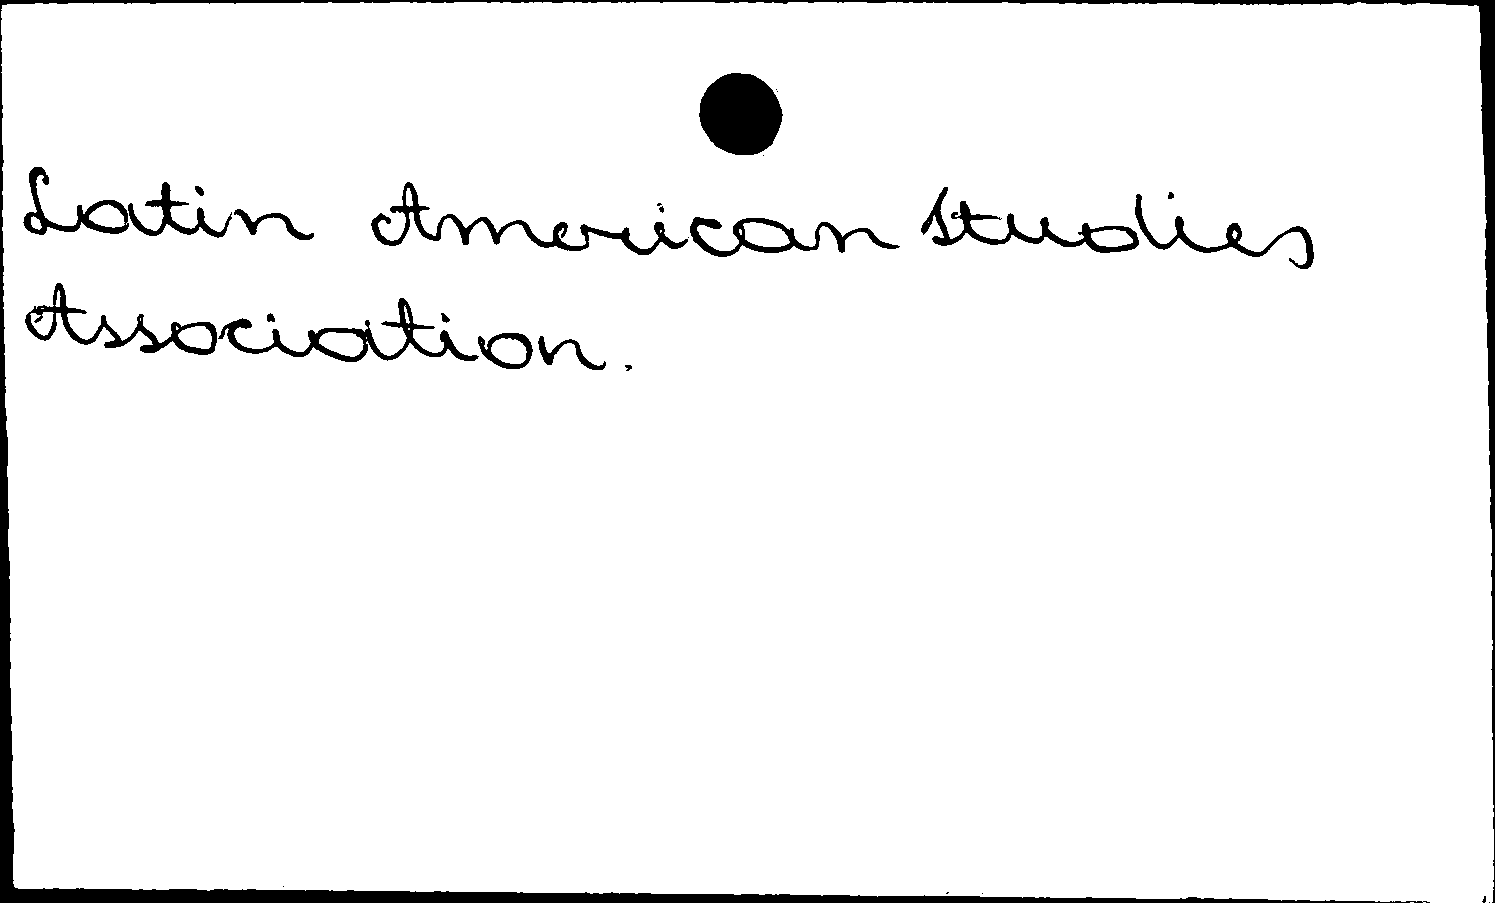 Latin American Studies
Association.